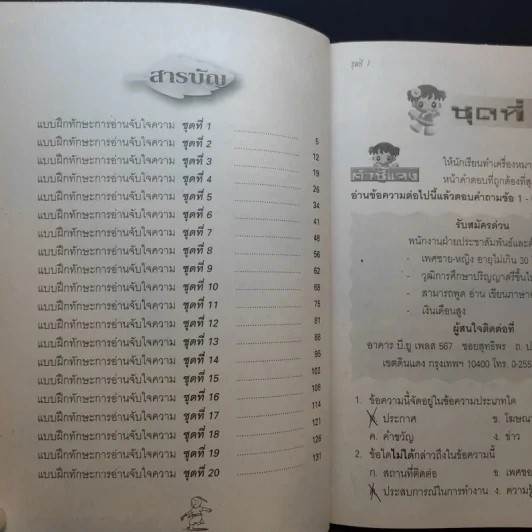 สารบัญ
แบบฝึกทักษะการอ่านจับใจความ ชุดที่ 1 5
แบบฝึกทักษะการอ่านจับใจความ ชุดที่ 2 12
แบบฝึกทักษะการอ่านจับใจความ ชุดที่ 3 19
แบบฝึกทักษะการอ่านจับใจความ ชุดที่ 4 26
แบบฝึกทักษะการอ่านจับใจความ ชุดที่ 5 34
แบบฝึกทักษะการอ่านจับใจความ ชุดที่ 6 41
แบบฝึกทักษะการอ่านจับใจความ ชุดที่ 7 48
แบบฝึกทักษะการอ่านจับใจความ ชุดที่ 8 56
แบบฝึกทักษะการอ่านจับใจความ ชุดที่ 9 62
แบบฝึกทักษะการอ่านจับใจความ ชุดที่ 10 68
แบบฝึกทักษะการอ่านจับใจความ ชุดที่ 11 75
แบบฝึกทักษะการอ่านจับใจความ ชุดที่ 12 81
แบบฝึกทักษะการอ่านจับใจความ ชุดที่ 13 88
แบบฝึกทักษะการอ่านจับใจความ ชุดที่ 14 95
แบบฝึกทักษะการอ่านจับใจความ ชุดที่ 15 102
แบบฝึกทักษะการอ่านจับใจความ ชุดที่ 16 108
แบบฝึกทักษะการอ่านจับใจความ ชุดที่ 17 114
แบบฝึกทักษะการอ่านจับใจความ ชุดที่ 18 121
แบบฝึกทักษะการอ่านจับใจความ ชุดที่ 19 126
แบบฝึกทักษะการอ่านจับใจความ ชุดที่ 20 131
ชุดที่ 1
ชุดที่
คำชี้แจง
ให้นักเรียนทำเครื่องหมา
หน้าคำตอบที่ถูกต้องที่สุ
อ่านข้อความต่อไปนี้แล้วตอบคำถามข้อ 1 -
รับสมัครด่วน
พนักงานฝ่ายประชาสัมพันธ์และต้
- เพศชาย-หญิง อายุไม่เกิน 30
- วุฒิการศึกษาปริญญาตรีขึ้นไ
- สามารถพูด อ่าน เขียนภาษา
- เงินเดือนสูง
ผู้สนใจติดต่อที่
อาคาร บี.ยู เพลส 567 ซอยสุทธิพร ถ. ป
เขตดินแดง กรุงเทพฯ 10400 โทร. 0-255
1. ข้อความนี้จัดอยู่ในข้อความประเภทใด
ก. ประกาศ ข. โฆษณ
ค. คำขวัญ ง. ข่าว
2. ข้อใดไม่ได้กล่าวถึงในข้อความนี้
ก. สถานที่ติดต่อ ข. เพศขอ
ค. ประสบการณ์ในการทำงาน ง. ความรู้